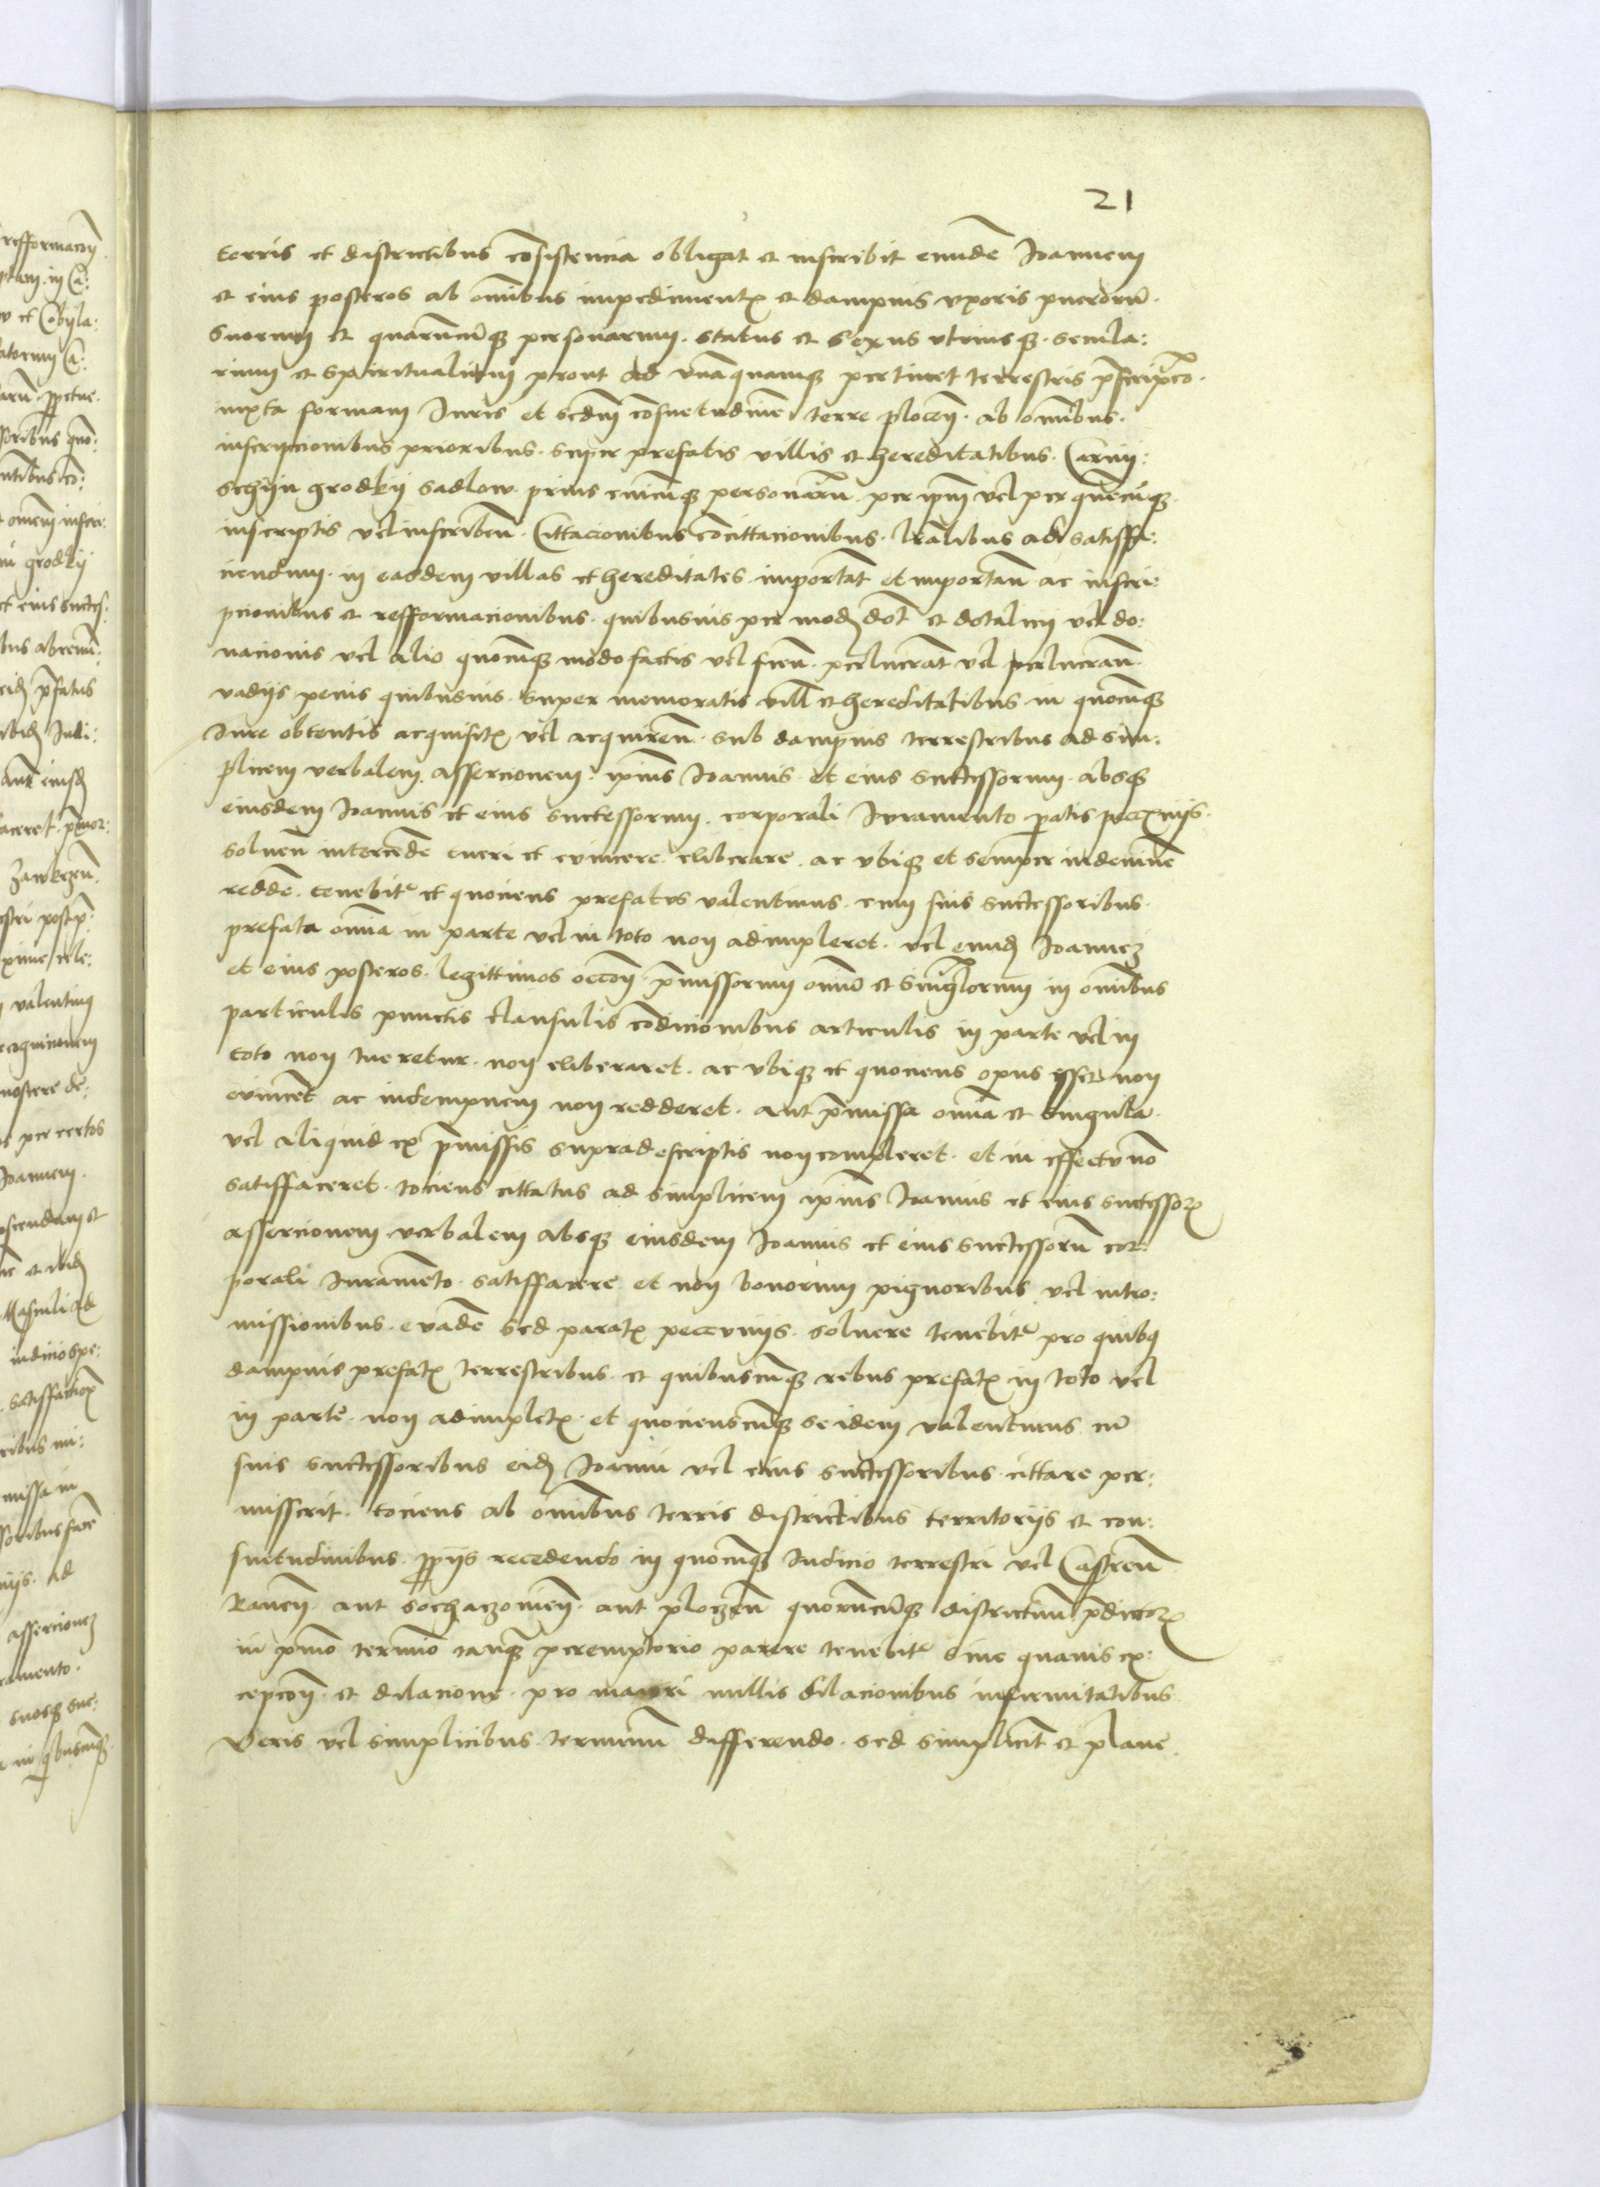 21
terris et districtibus cōsistencia obligat et inscribit eundē Joannem
et eius posteros ab om̄ibus impedimentꝭ et dampnis vxoris puerorū
suorum et quarūcūqꝫ personarum . status et sexus vtriusqꝫ . secula:
rium et spiritualium prout ad vnāquamqꝫ pertinet terrestris p̄scripco
iuxta formam Juris et scdm̄ cōsuetudinē terre plocen̄ . ab om̄ibus .
inscripcionibus prioribus . super prefatis villis et hereditatibus .
grodky sadlow . prius cuicūqꝫ personarū . per ip̄m vel per quēcūqꝫ
inscriptis vel inscriben̄ . Cittacionibus cōcittacionibus . lr̄alibus ad satiffa:
ciendum . in easdem villas et hereditates importat̄ et importan̄ ac inscri:
pcionibus et refformacionibus . quibusuis per modū dot̄ et dotalicy vel do:
nacionis vel alio quocūqꝫ modo factis vel fien̄ . perlucrat̄ vel perlucran̄
vadijs penis quibusuis . super memoratis vill̄ et hereditatibus in quocūqꝫ
Jure obtentis acquisitꝭ vel acquiren̄ . sub dampnis terrestribus ad sim:
plicem verbalem assercionem . ip̄ius Joannis . et eius successorum . absqꝫ
eiusdem Joannis et eius successorum . corporali Juramento . p̄atis peccunijs .
soluen̄ intercedē tueri et euincere eliberare . ac vbiqꝫ et semper indemnē
reddē . tenebitᵉ et quociens prefatus valentinus . cum suis successoribus .
prefata om̄ia in parte vel in toto non adimpleret . vel eundē Joannem
et eius posteros . legittimos occōn̄ . p̄missorum om̄iū et singulorum in om̄ibus
particulis punctis clausulis cōdicionibus articulis in parte vel in
toto non tueretur . non eliberaret . ac vbiqꝫ et quociens opus esset non
euincet̄ ac indempnem non redderet . aut p̄missa om̄ia et singula
vel aliquid ex p̄missis supradescriptis non compleret . et in effectu nō
satiffaceret . tociens cittatus ad simplicem ip̄ius Joannis et eius successoꝝ
assercionem verbalem absqꝫ eiusdem Joannis et eius successorū cor:
porali Juramēto . satiffacere et non bonorum pignoribus vel intro:
missionibus . euadē sed paratꝭ peccunijs . soluere tenebitᵉ pro quibꝰ
dampnis prefatꝭ terrestribus . et quibuscūqꝫ rebus prefatꝭ in toto vel
in parte . non adimpletꝭ . et quocienscūqꝫ se idem valentinus cū
suis successoribus eidē Joanni vel eius successoribus cittare per:
misserit . tociens ab om̄ibus terris districtibus territorijs et con:
suetudinibus . p̄prijs recedendo in quocūqꝫ Judicio terrestri vel Castren̄
Rauen̄ . aut Sochaczouien̄ . aut ploczen̄ quorūcūqꝫ districtuū p̄dictoꝝ
in p̄mo termīo tanqꝫ peremptorio parere tenebitᵉ sine quauis ex:
cepcōn̄ . et dilacione . pro maiori nullis dilacionibus infirmitatibus
veris vel simplicibus . terminū differendo . sed simplicit̄ et plane